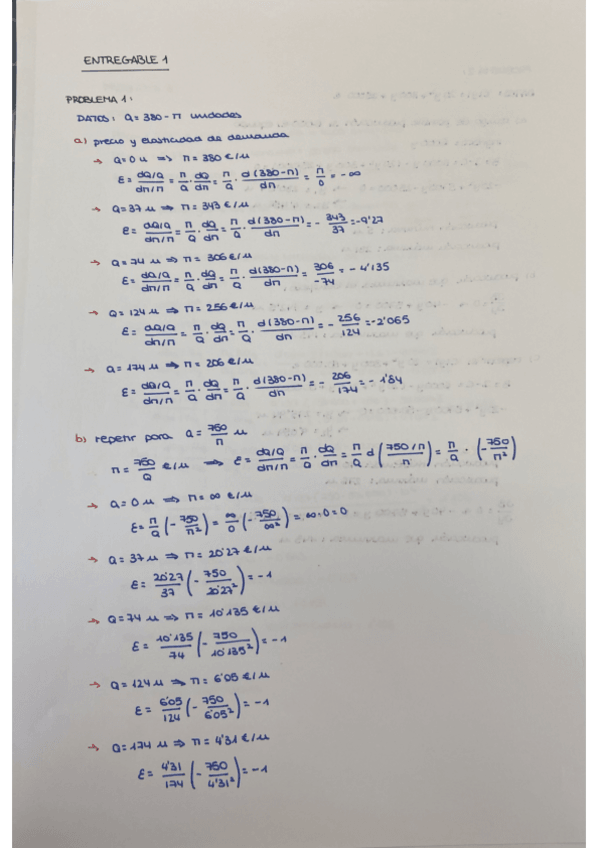 ENTREGABLE 1
PROBLEMA 1:
DATOS: Q = 380 - π unidades
a) precio y elasticidad de demanda
→ Q = 0 u ⇒ π = 380 €/u
ε = (dQ/Q)/(dπ/π) = π/Q · dQ/dπ = π/Q · d(380-π)/dπ = π/0 = -∞
→ Q = 37 u ⇒ π = 343 €/u
ε = (dQ/Q)/(dπ/π) = π/Q · dQ/dπ = π/Q · d(380-π)/dπ = - 343/37 = -9'27
→ Q = 74 u ⇒ π = 306 €/u
ε = (dQ/Q)/(dπ/π) = π/Q · dQ/dπ = π/Q · d(380-π)/dπ = 306/-74 = -4'135
→ Q = 124 u ⇒ π = 256 €/u
ε = (dQ/Q)/(dπ/π) = π/Q · dQ/dπ = π/Q · d(380-π)/dπ = - 256/124 = -2'065
→ Q = 174 u ⇒ π = 206 €/u
ε = (dQ/Q)/(dπ/π) = π/Q · dQ/dπ = π/Q · d(380-π)/dπ = - 206/174 = -1'84
b) repetir para Q = 750/π u
π = 750/Q €/u ⇒ ε = (dQ/Q)/(dπ/π) = π/Q · dQ/dπ = π/Q d((750/π)/π) = π/Q · (-750/π²)
→ Q = 0 u ⇒ π = ∞ €/u
ε = π/Q (-750/π²) = ∞/0 (-750/∞²) = ∞·0 = 0
→ Q = 37 u ⇒ π = 20'27 €/u
ε = 20'27/37 (-750/20'27²) = -1
→ Q = 74 u ⇒ π = 10'135 €/u
ε = 10'135/74 (-750/10'135²) = -1
→ Q = 124 u ⇒ π = 6'05 €/u
ε = 6'05/124 (-750/6'05²) = -1
→ Q = 174 u ⇒ π = 4'31 €/u
ε = 4'31/174 (-750/4'31²) = -1